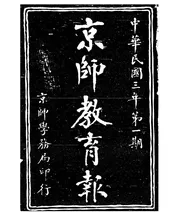 中華民國三年第一期
京師教育報
京師學務局印行